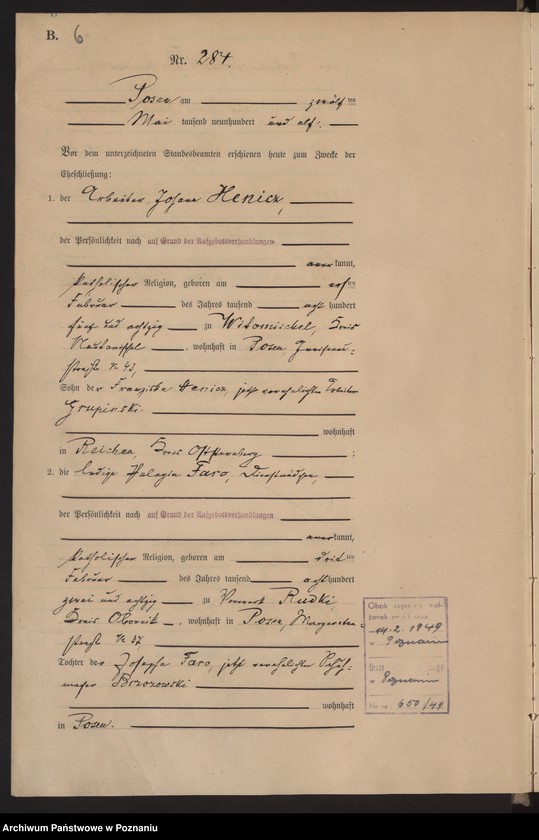 B. 6
Nr. 284.
Posen am zwölf ten
Mai tausend neunhundert und elf.
Vor dem unterzeichneten Standesbeamten erschienen heute zum Zwecke der
Eheschließung:
1. der Arbeiter Johann Henicz,
der Persönlichkeit nach auf Grund der Aufgebotsverhandlungen
kannt,
katholischer Religion, geboren am ersten
Februar des Jahres tausend acht hundert
fünf und achtzig zu Witomischel, Kreis
Neutomischel, wohnhaft in Posen,
straße № 43,
Sohn der Franziska Henicz, jetzt verehelichten Arbeiter
Grupinski.
wohnhaft
in Reichen, Kreis Oststernberg;
2. die ledige Pelagia Faro, Dienstmädchen,
der Persönlichkeit nach auf Grund der Aufgebotsverhandlungen
kannt,
katholischer Religion, geboren am dritten
Februar des Jahres tausend acht hundert
zwei und achtzig zu Vorwerk Rudki,
Kreis Obornik, wohnhaft in Posen, Margareten-
straße № 37
Tochter der Josepha Faro, jetzt verehelichten Schuh-
macher Brzozowski
wohnhaft
in Posen.
14.2.1949
w Poznaniu
w Poznaniu
Nr 650/49
Archiwum Państwowe w Poznaniu